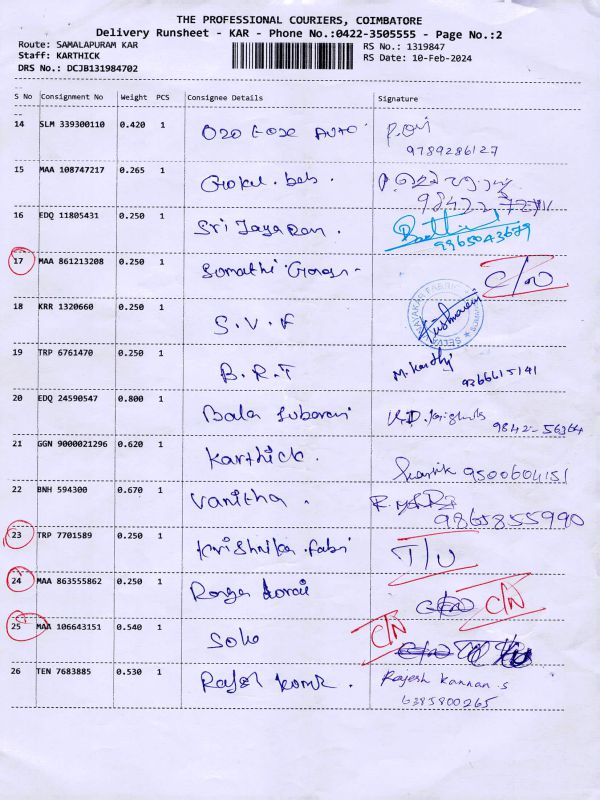 THE PROFESSIONAL COURIERS, COIMBATORE
Delivery Runsheet - KAR - Phone No.:0422-3505555 - Page No.:2
Route: SAMALAPURAM KAR
RS No.: 1319847
Staff: KARTHICK
RS Date: 10-Feb-2024
DRS No.: DCJB131984702
S No Consignment No Weight PCS Consignee Details Signature
14 SLM 339300110 0.420 1
9789286127
15 MAA 108747217 0.265 1 Gokul. bab.
16 EDQ 11805431 0.250 1 Sri Jayaram.
9965043679
17 MAA 861213208 0.250 1 C/N
18 KRR 1320660 0.250 1 S.V.F
19 TRP 6761470 0.250 1 B.R.T M. Karthi
9366615141
20 EDQ 24590547 0.800 1 Bala
9842-56364
21 GGN 9000021296 0.620 1 Karthick. Kartik 9500604151
22 BNH 594300 0.670 1 Vanitha.
9865855990
23 TRP 7701589 0.250 1 T/U
24 MAA 863555862 0.250 1 C/N
25 MAA 106643151 0.540 1 C/N
26 TEN 7683885 0.530 1 Rajesh Kannan.s
6385800265